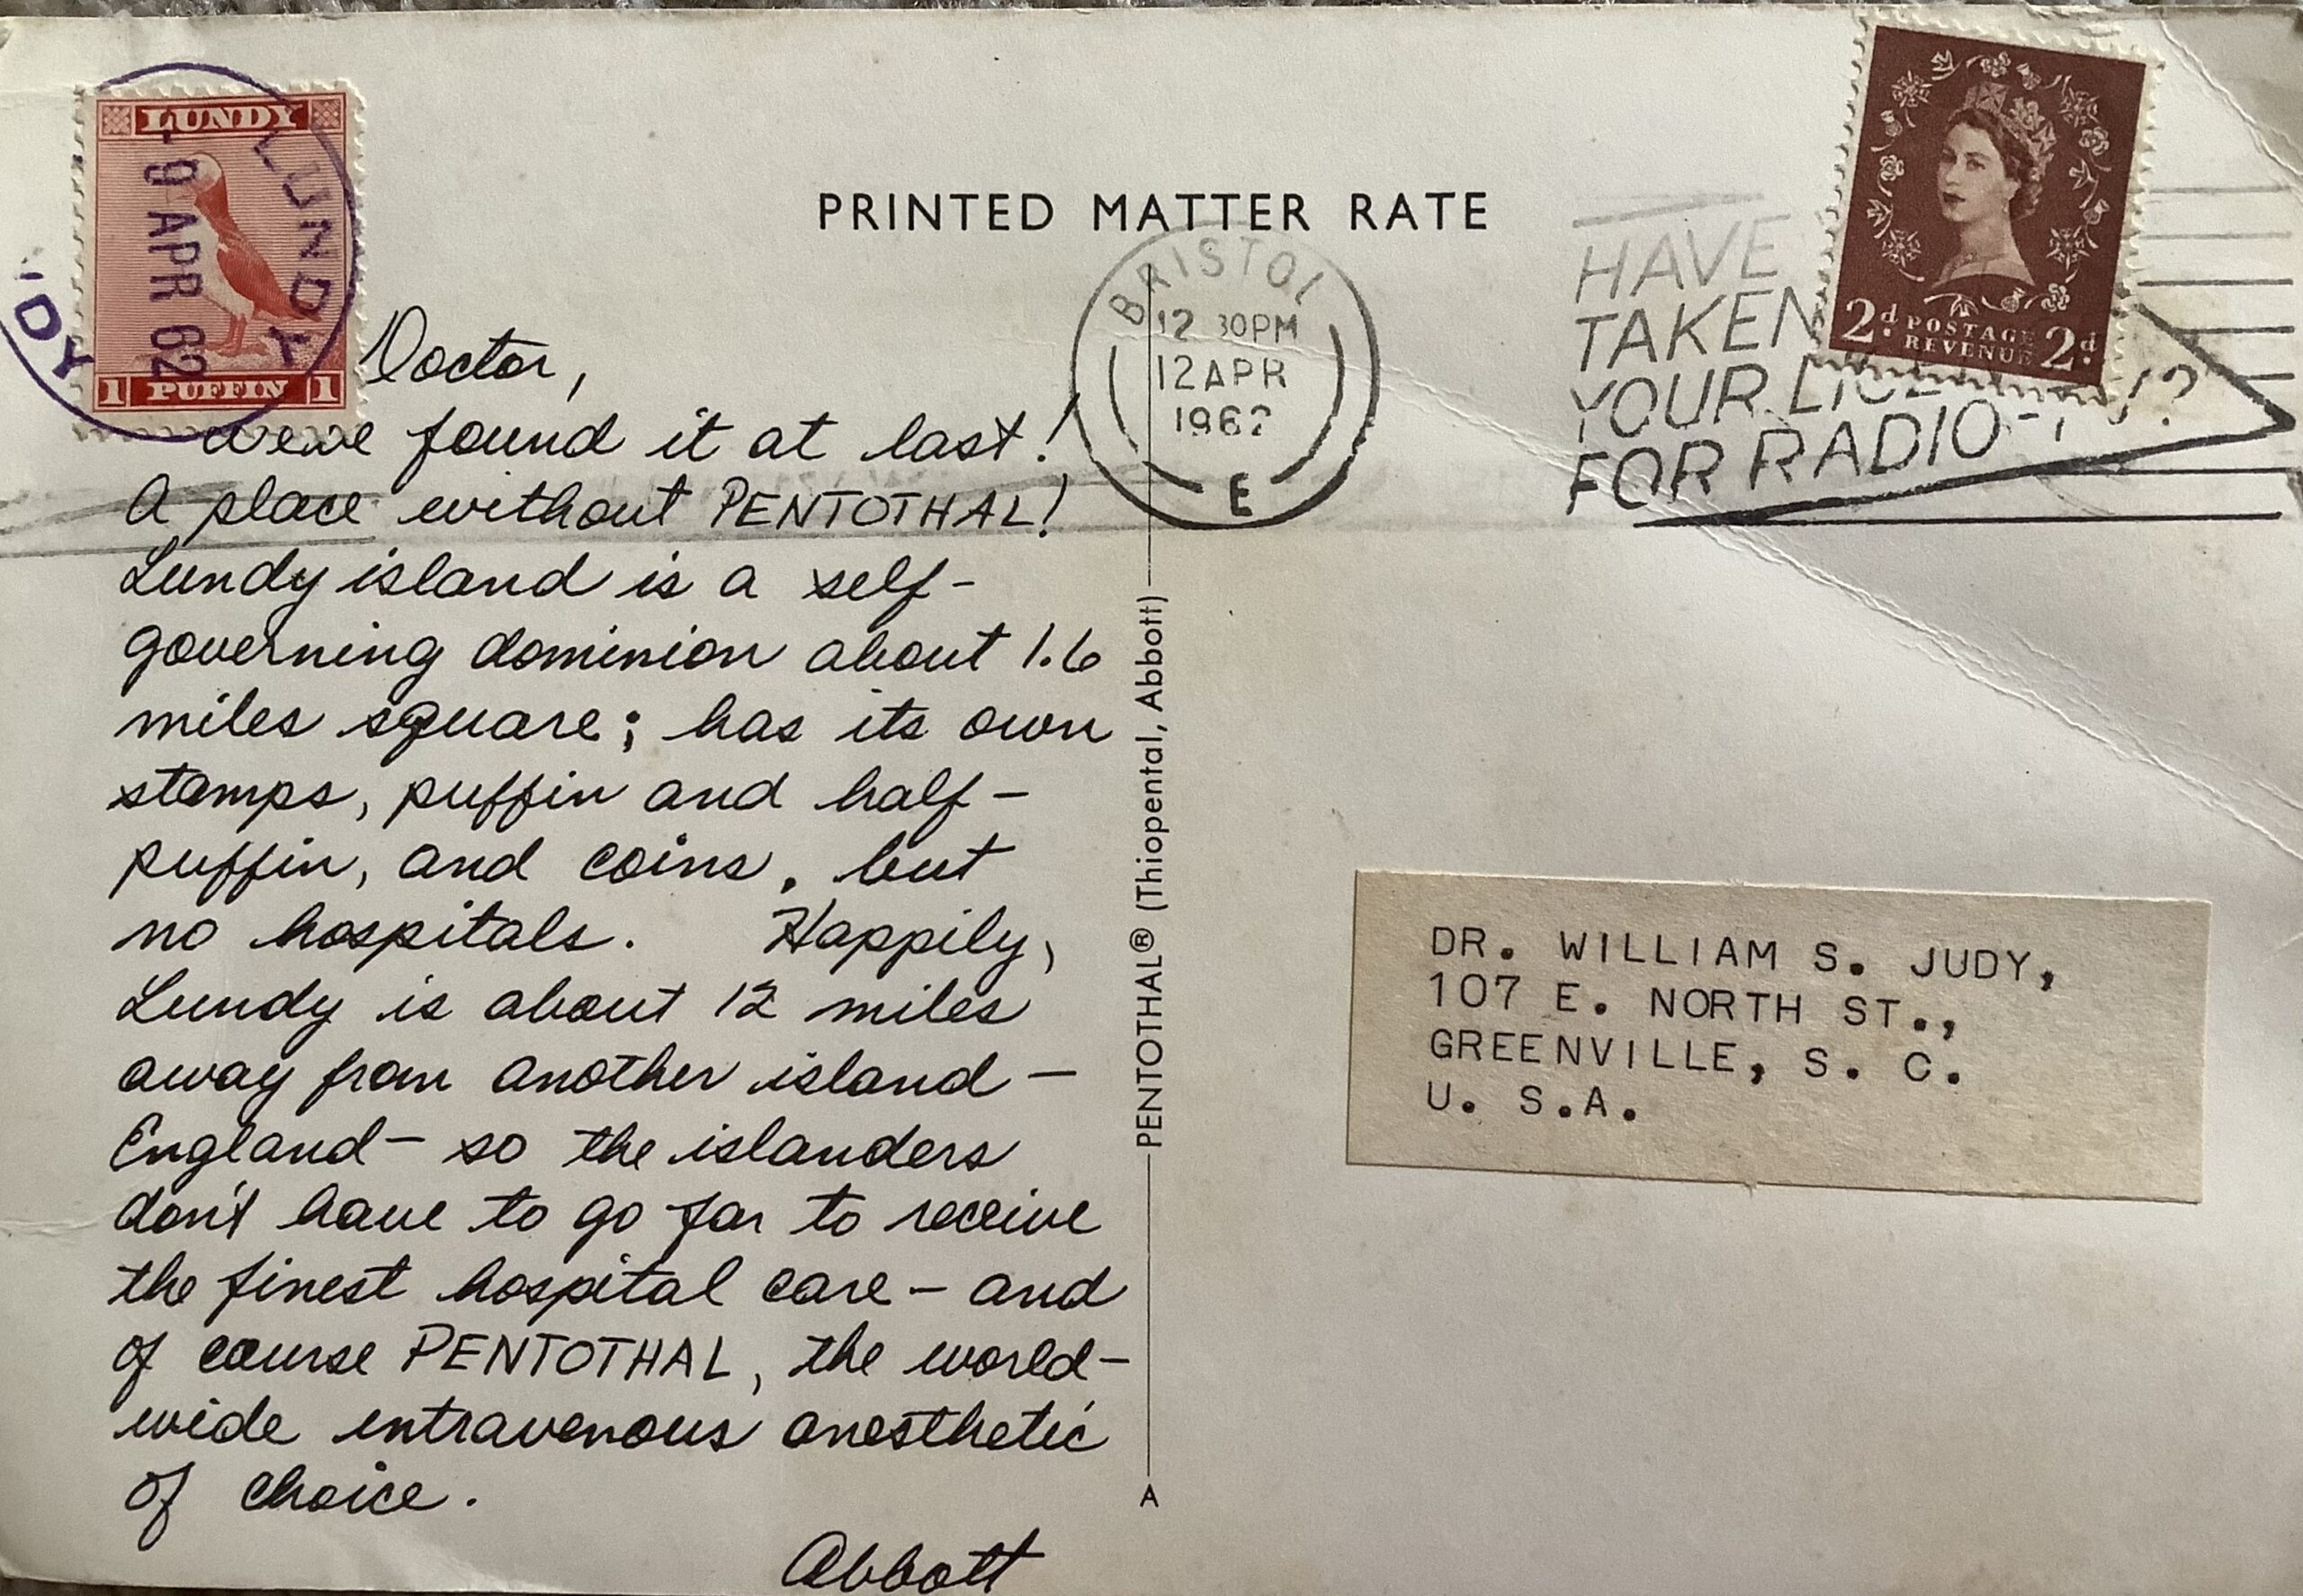 LUNDY
LUNDY
- 9 APR 62
DY
1 PUFFIN 1
PRINTED MATTER RATE
BRISTOL
12 30PM
12 APR
1962
E
HAVE
TAKEN
YOUR
FOR RADIO-
2d POSTAGE 2d
REVENUE
Doctor,
we've found it at last!
A place without PENTOTHAL!
Lundy island is a self-
governing dominion about 1.6
miles square; has its own
stamps, puffin and half-
puffin, and coins, but
no hospitals. Happily,
Lundy is about 12 miles
away from another island -
England - so the islanders
don't have to go far to receive
the finest hospital care - and
of course PENTOTHAL, the world-
wide intravenous anesthetic
of choice.
Abbott
PENTOTHAL® (Thiopental, Abbott)
A
DR. WILLIAM S. JUDY,
107 E. NORTH ST.,
GREENVILLE, S. C.
U. S.A.